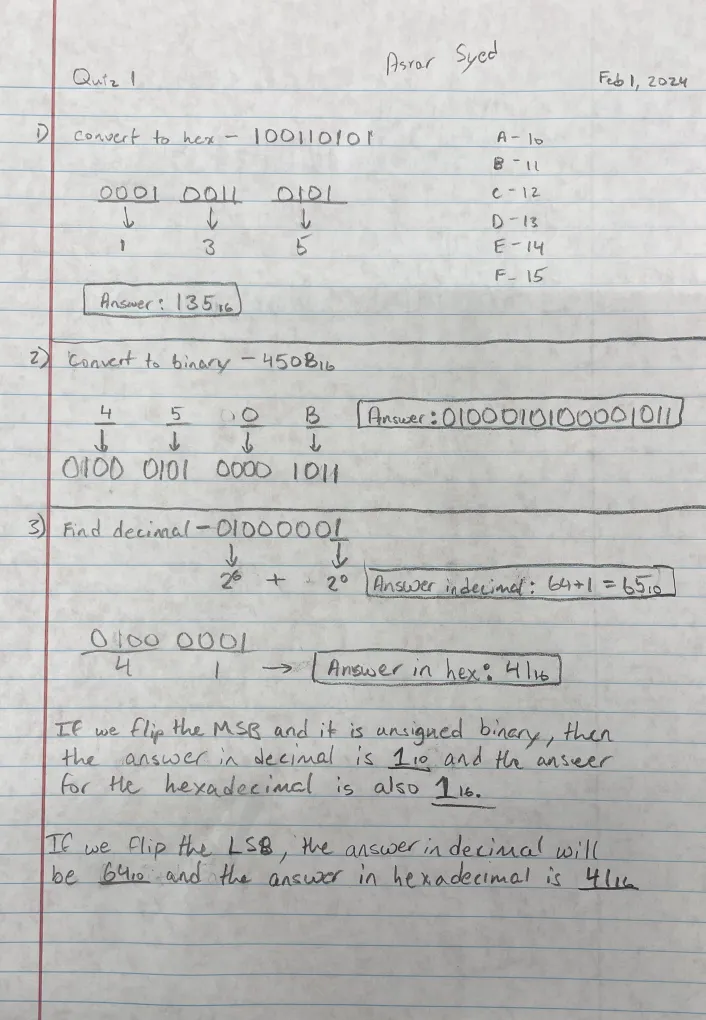 Asrar Syed
Quiz 1
Feb 1, 2024
1) Convert to hex - 100110101
A - 10
B - 11
C - 12
D - 13
E - 14
F - 15
0001 0011 0101
↓ ↓ ↓
1 3 5
Answer: 135₁₆
2) Convert to binary - 450B₁₆
4 5 0 B
↓ ↓ ↓ ↓
0100 0101 0000 1011
Answer: 0100010100001011
3) Find decimal - 01000001
↓ ↓
2⁶ + 2⁰
Answer in decimal: 64+1 = 65₁₀
0100 0001
4 1 → Answer in hex: 41₁₆
If we flip the MSB and it is unsigned binary, then
the answer in decimal is 1₁₀ and the answer
for the hexadecimal is also 1₁₆.
If we flip the LSB, the answer in decimal will
be 64₁₀ and the answer in hexadecimal is 41₁₆